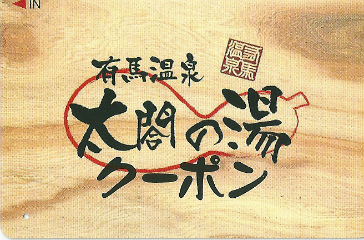 ◀IN
有馬温泉
有馬温泉
太閤の湯
クーポン